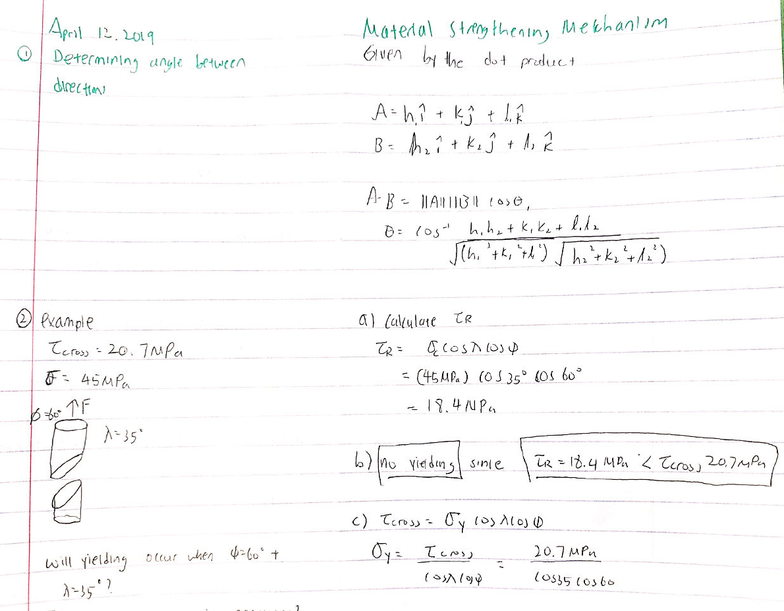 April 12, 2019
Material Strengthening Mekhanism
① Determining angle between
directions
Given by the dot product
A = h₁î + k₁ĵ + l₁k̂
B = h₂î + k₂ĵ + l₂k̂
A·B = ||A|| ||B|| cosθ,
θ = cos⁻¹ h₁h₂ + k₁k₂ + l₁l₂
√(h₁² + k₁² + l₁²) √h₂² + k₂² + l₂²)
② Example
τcross = 20.7 MPa
σ = 45 MPa
ϕ=60° ↑F
λ=35°
will yielding occur when ϕ=60° +
λ=35°?
a) Calculate τR
τR = σ cosλ cosϕ
= (45 MPa) cos 35° cos 60°
= 18.4 MPa
b) no yielding since τR = 18.4 MPa < τcross, 20.7 MPa
c) τcross = σy cosλ cosϕ
σy = τcross / cosλ cosϕ = 20.7 MPa / cos35 cos60